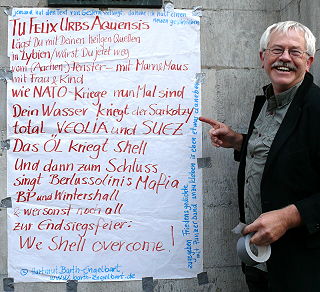 jemand hat den Text von gestern
TU FELIX URBS Aquensis
Lägst Du mit Deinen heißen Quellen
in Lybien, wärst Du jetzt weg
vom (Aachen-) Fenster - mit Mann & Maus
mit Frau & Kind
wie NATO-Kriege nun Mal sind
Dein Wasser kriegt der Sarkotzy
total VEOLIA und SUEZ
Das ÖL kriegt Shell
Und dann zum Schluss
singt Berlusslolinis Mafia
BP und Wintershall
& wer sonst noch all
zur Endsiegfeier:
We Shell overcome!
© Hartmut Barth-Engelbart
www.barth-engelbart.de